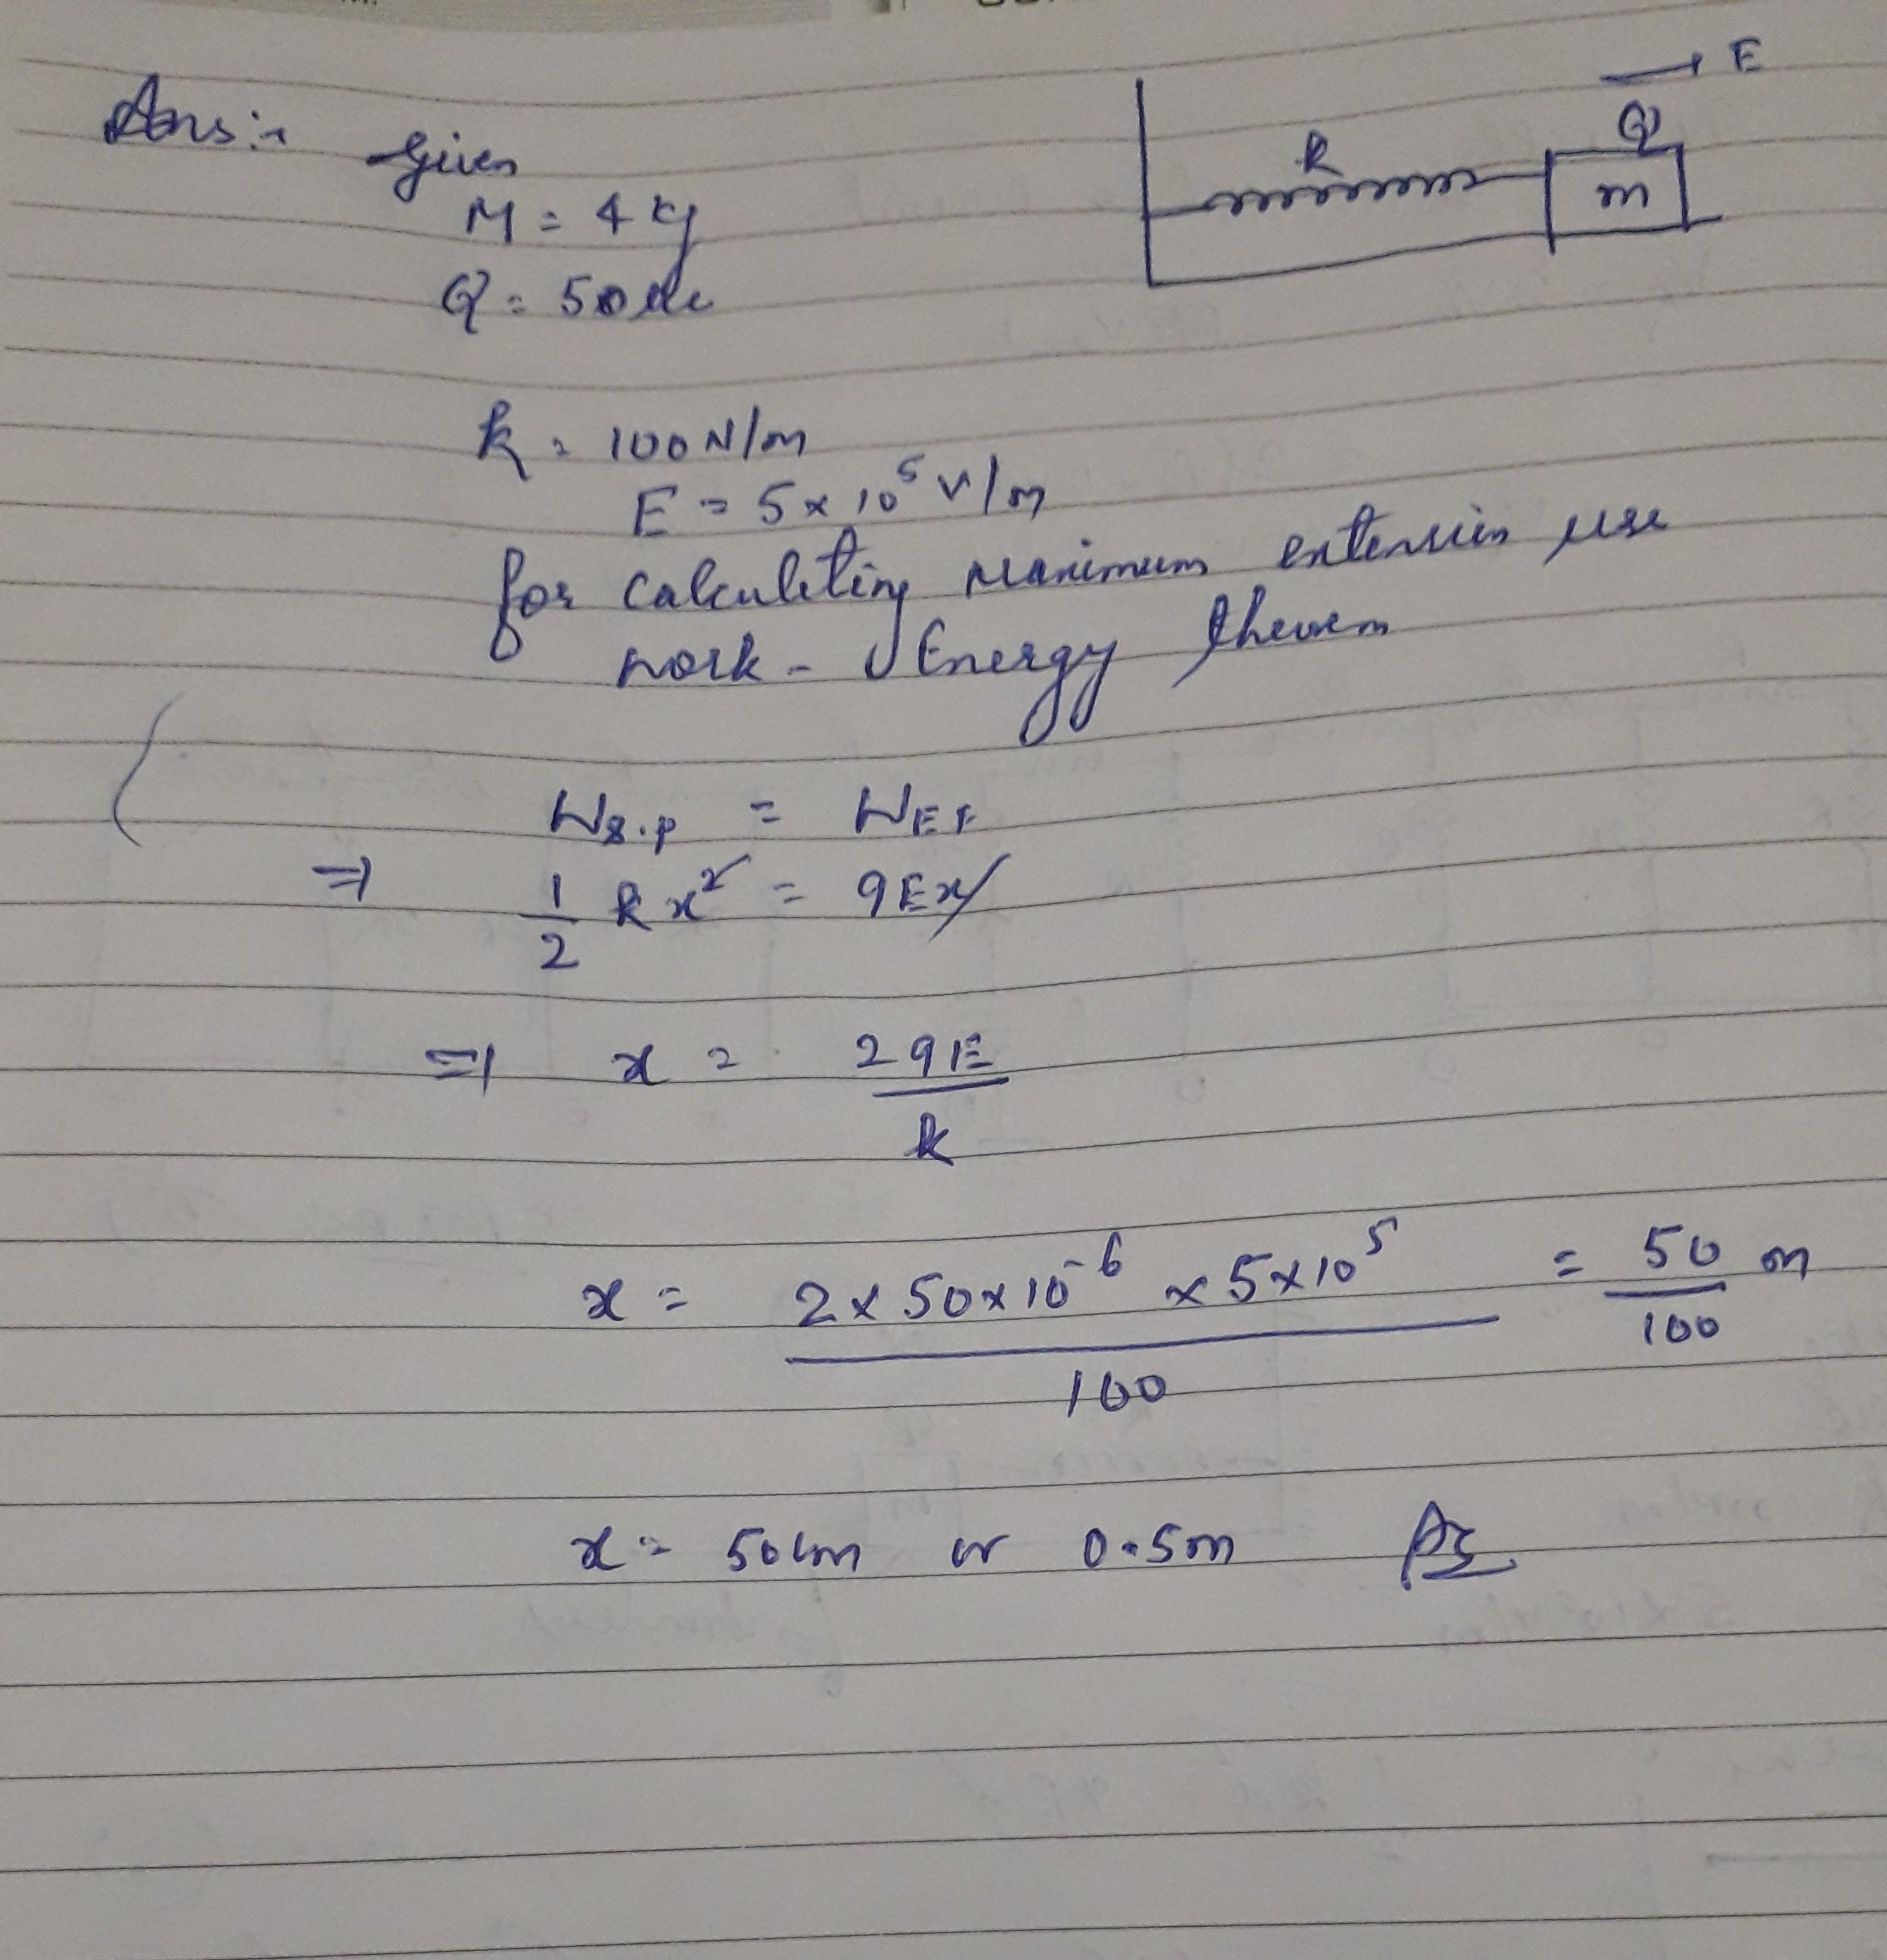 Ans:-
Given
M = 4 kg
Q = 50 μc
→ E
Q
k
m
k = 100 N/m
E = 5 × 10⁵ V/m
for calculating maximum extension use
work - Energy theorem
W_{S.P} = W_{EF}
⇒ 1/2 k x² = qEx
⇒ x = 2qE/k
x = 2 × 50 × 10⁻⁶ × 5 × 10⁵ / 100 = 50/100 m
x = 50 cm or 0.5 m